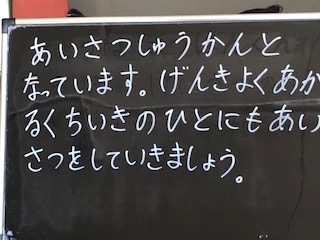 あいさつしゅうかんと
なっています。げんきよくあか
るくちいきのひとにもあい
さつをしていきましょう。